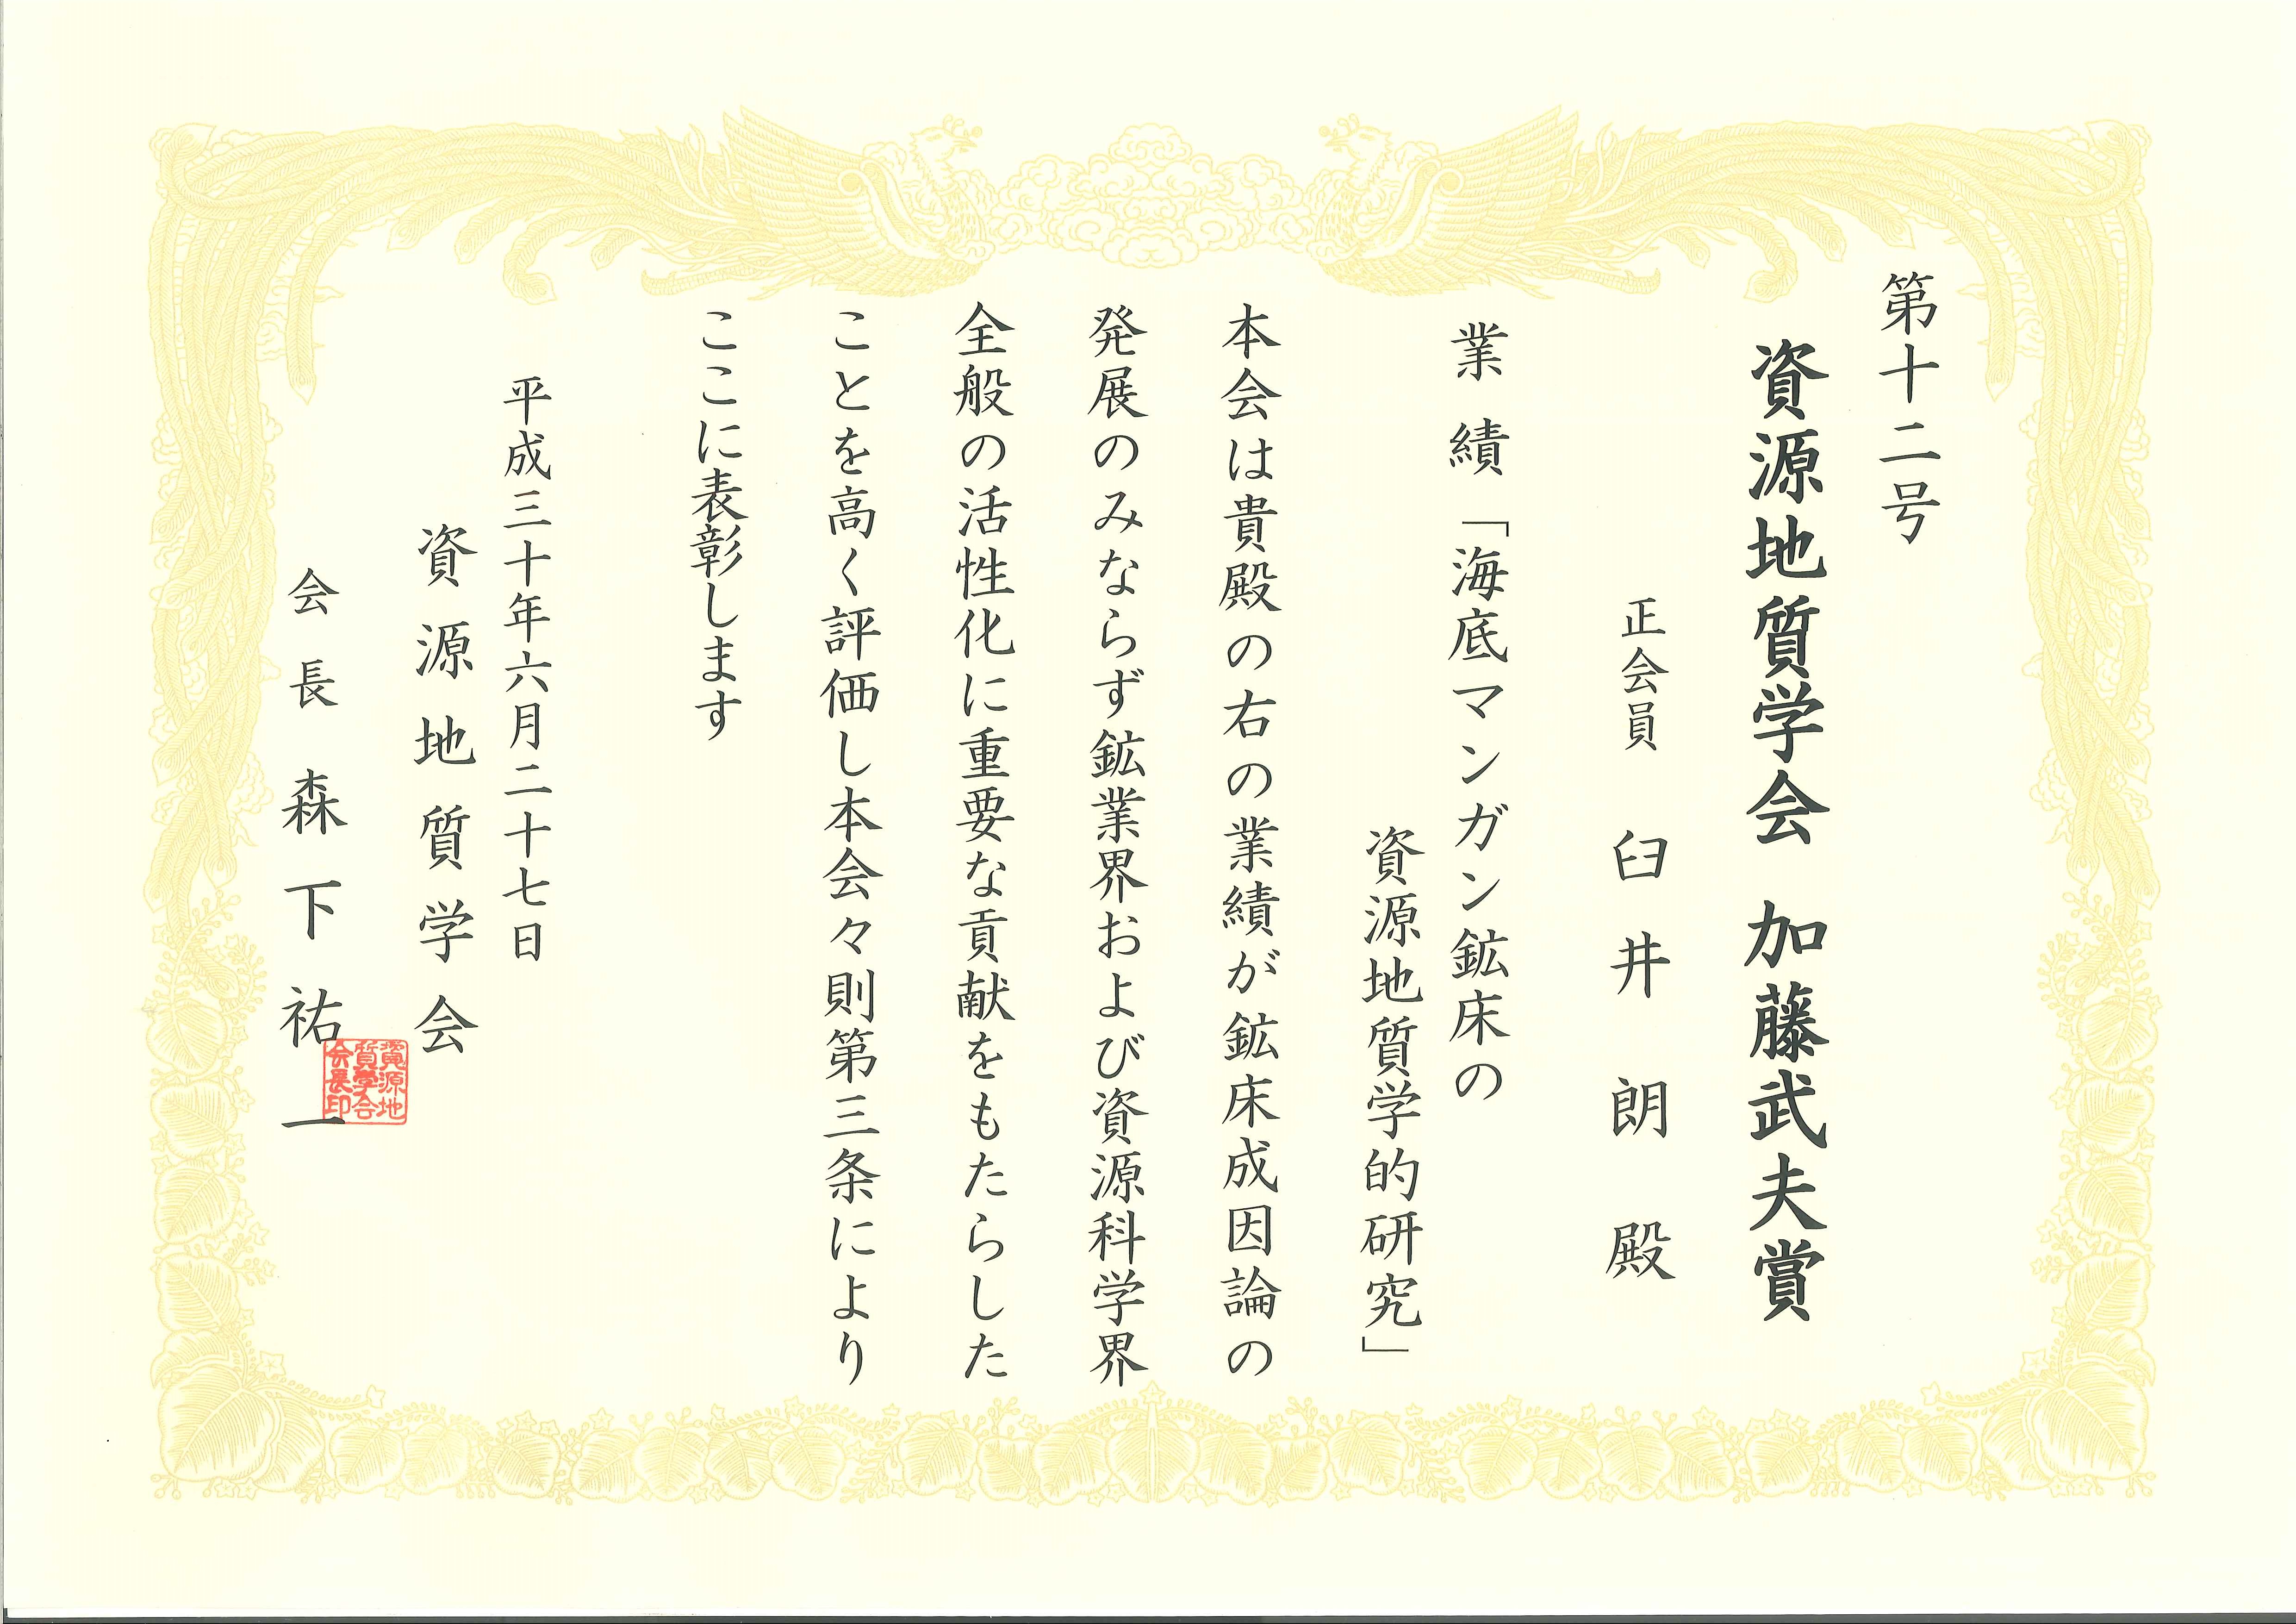 第十二号
資源地質学会 加藤武夫賞
正会員 臼井朗殿
業績「海底マンガン鉱床の
資源地質学的研究」
本会は貴殿の右の業績が鉱床成因論の
発展のみならず鉱業界および資源科学界
全般の活性化に重要な貢献をもたらした
ことを高く評価し本会々則第三条により
ここに表彰します
平成三十年六月二十七日
資源地質学会
会長 森下祐一
資源地
質学会
会長印